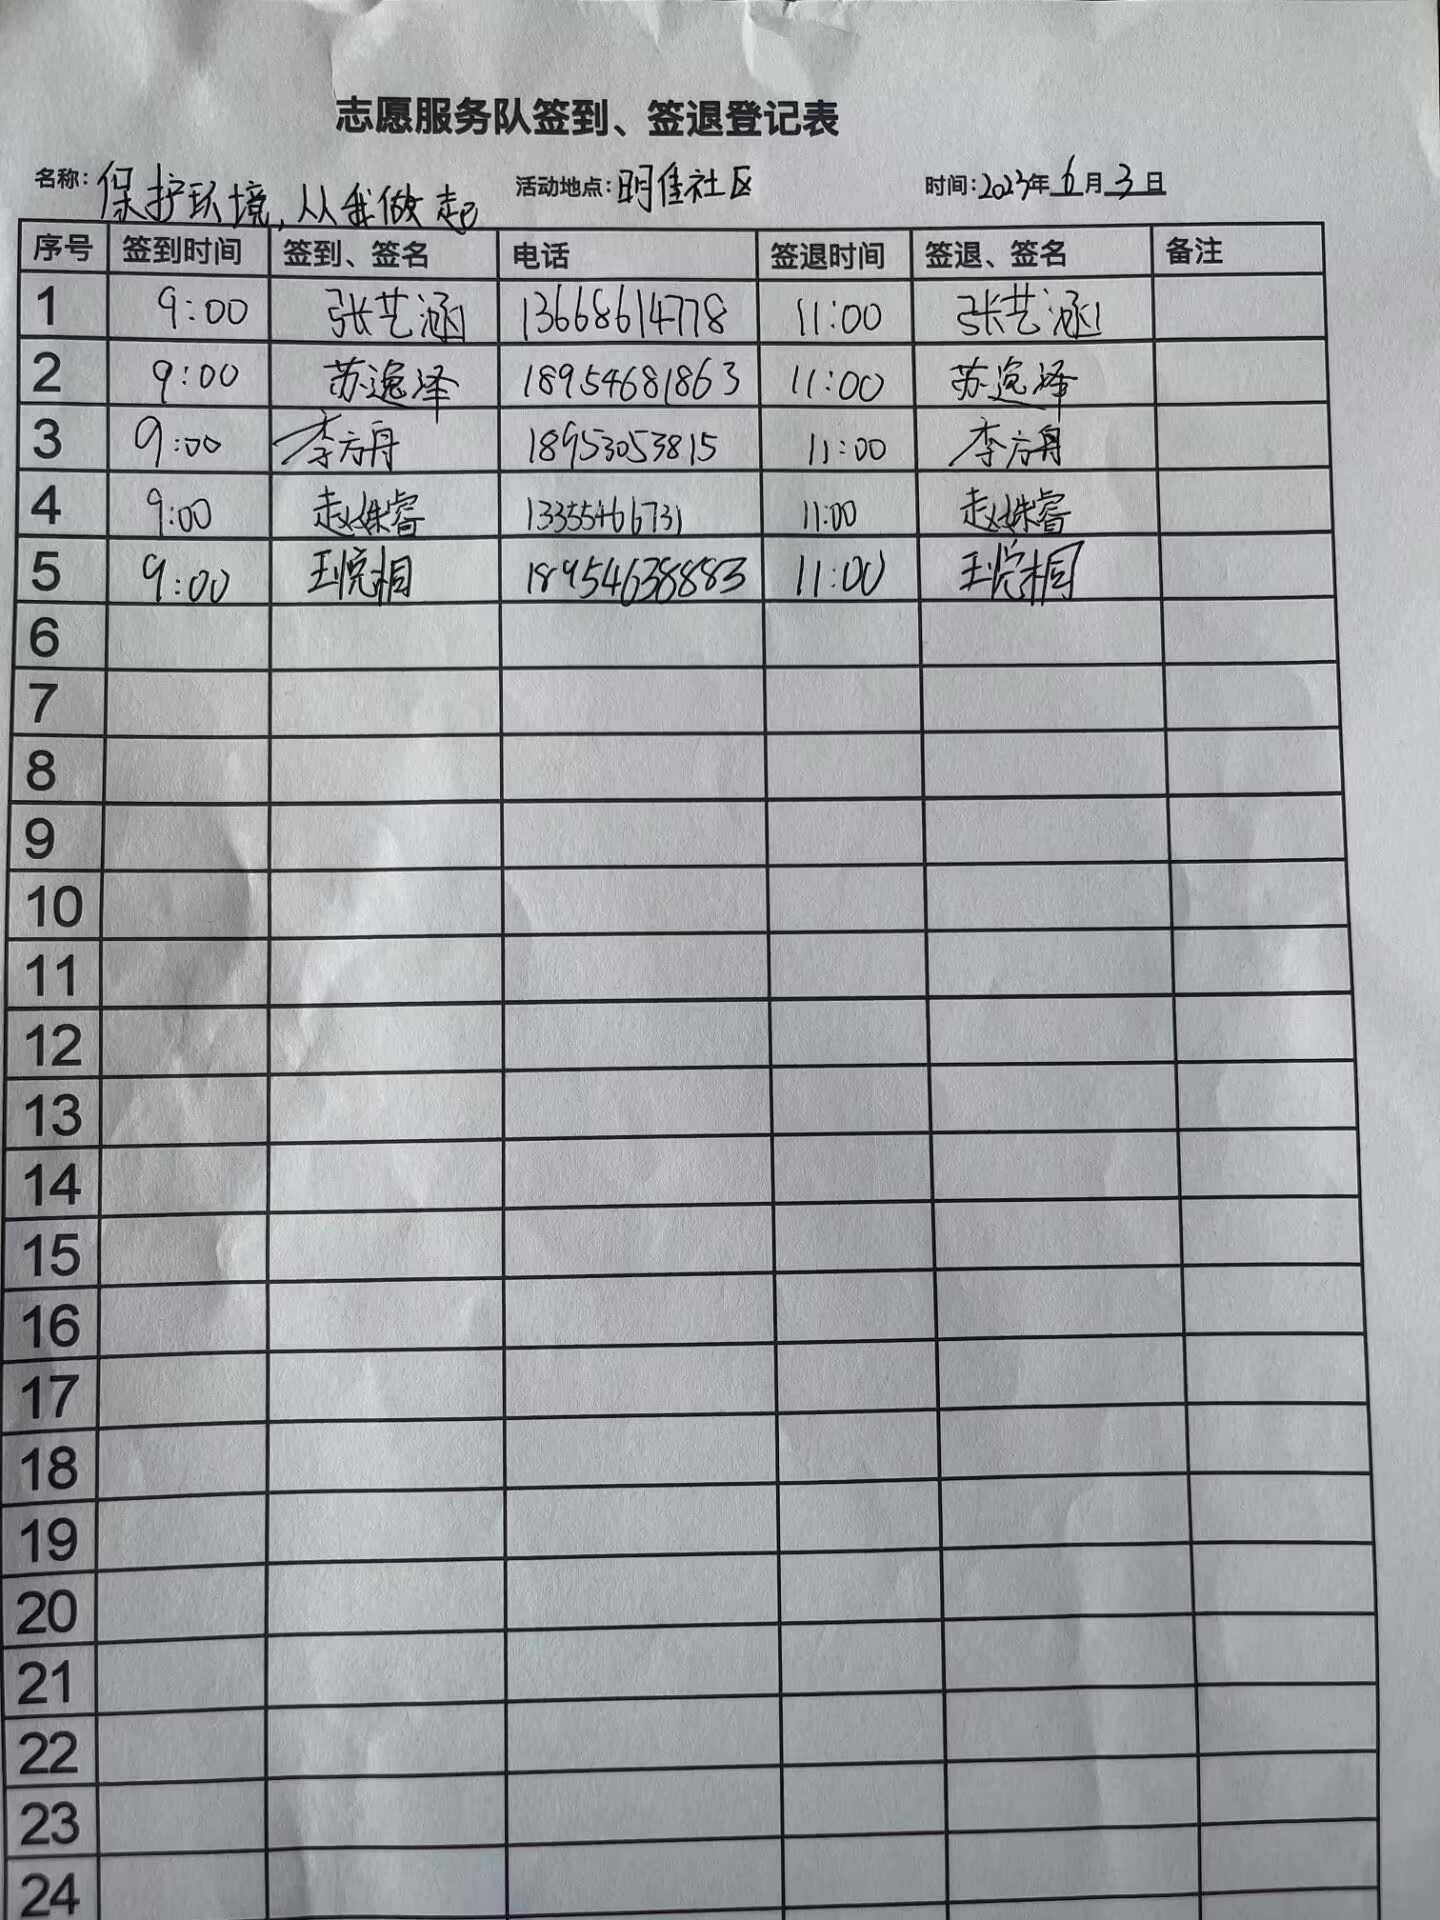 志愿服务队签到、签退登记表
名称：保护环境，从我做起 活动地点：明佳社区 时间：2023年6月3日
序号 签到时间 签到、签名 电话 签退时间 签退、签名 备注
1 9:00 张艺涵 13668614778 11:00 张艺涵
2 9:00 苏逸泽 18954681863 11:00 苏逸泽
3 9:00 李方舟 18953053815 11:00 李方舟
4 9:00 赵姝睿 13355466731 11:00 赵姝睿
5 9:00 王悦桐 18954638883 11:00 王悦桐
6
7
8
9
10
11
12
13
14
15
16
17
18
19
20
21
22
23
24